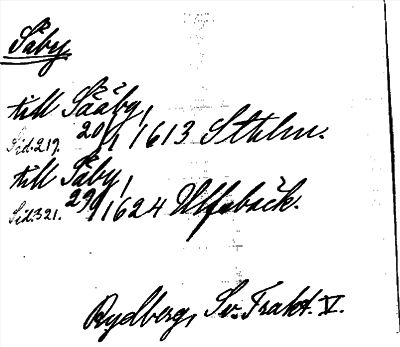 Säby.
till Sååby,
Sid. 219. 20/1 1613 Sthlm.
till Säby,
Sid. 321. 29/9 1624 Ulfsbäck.
Rydberg, Sv. Trakt. V.